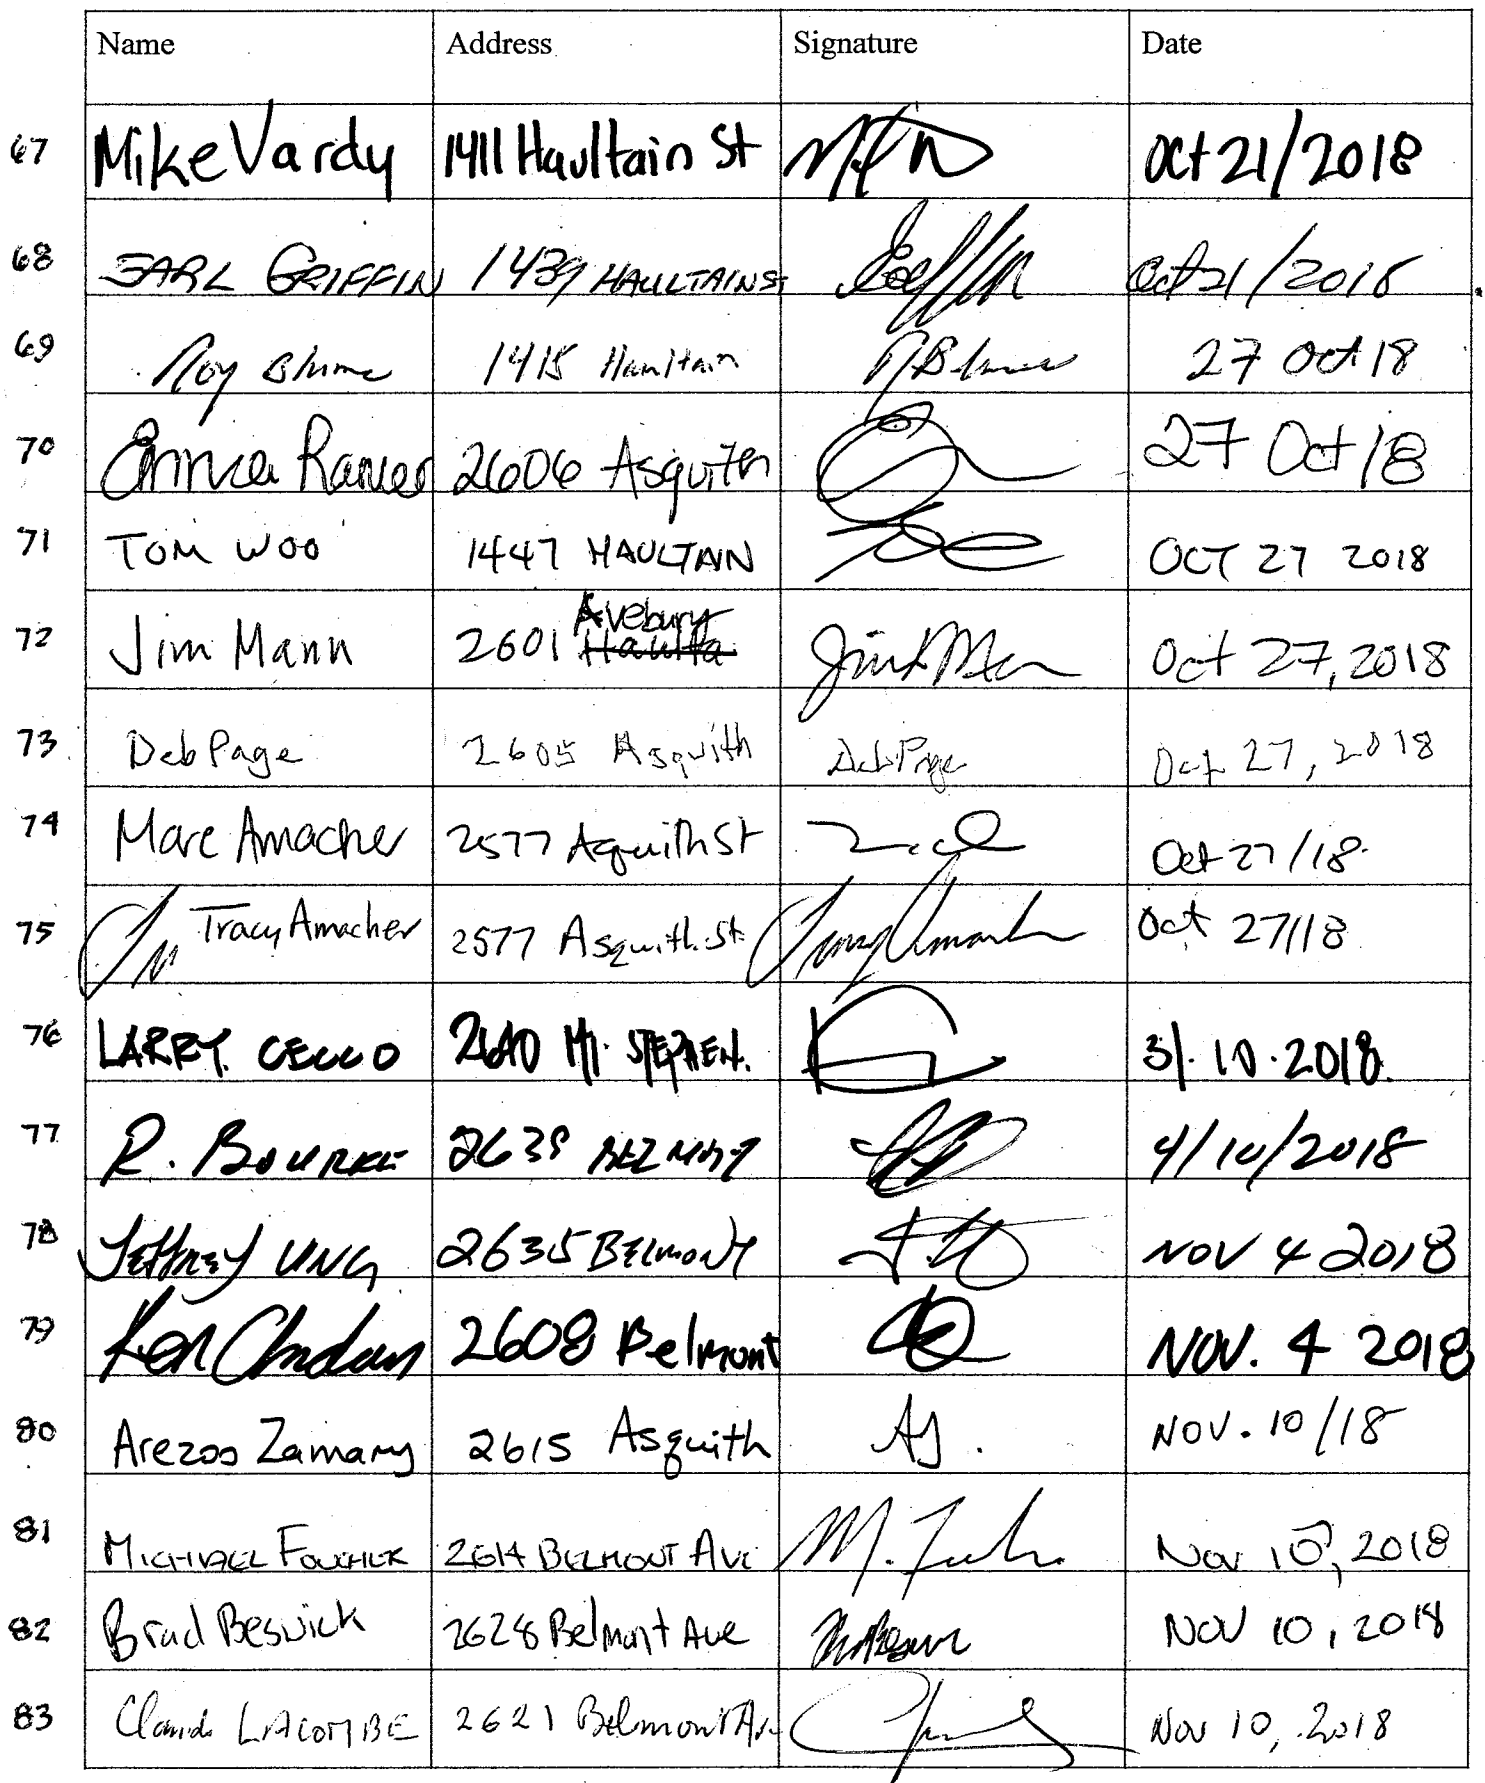 Name Address Signature Date
67 Mike Vardy 1411 Haultain St Oct 21/2018
68 EARL GRIFFIN 1439 HAULTAIN ST Oct 21/2018
69 Roy Blume 1415 Haultain R Blume 27 Oct 18
70 Emma 2606 Asquith 27 Oct/18
71 TOM WOO 1447 HAULTAIN OCT 27 2018
72 Jim Mann 2601 Avebury Oct 27, 2018
73 Deb Page 2605 Asquith Deb Page Oct 27, 2018
74 Marc Amacher 2577 Aquith St Oct 27/18
75 Tracy Amacher 2577 Asquith St Tracy Amacher Oct 27/18
76 LARRY CECCO 2640 Mt. STEPHEN. 31.10.2018.
77 R. BOURKE 2639 BELMONT 4/10/2018
78 Jeffrey UNG 2635 BELMONT NOV 4 2018
79 Ken 2608 Belmont NOV. 4 2018
80 Arezoo Zamany 2615 Asquith AZ. NOV. 10/18
81 MICHAEL FOUCHER 2614 BELMONT AVE Nov 10, 2018
82 Brad Beswick 2628 Belmont Ave NOV 10, 2018
83 Claude LACOMBE 2621 Belmont Av. Nov 10, 2018